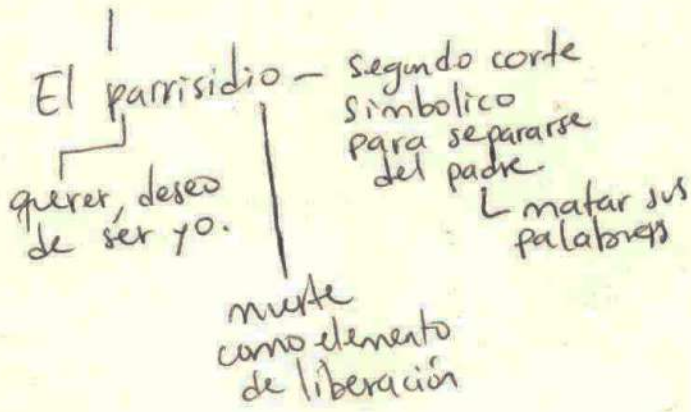 El parrisidio – segundo corte
simbolico
para separarse
del padre.
└ matar sus
palabras
querer, deseo
de ser yo.
muerte
como elemento
de liberación